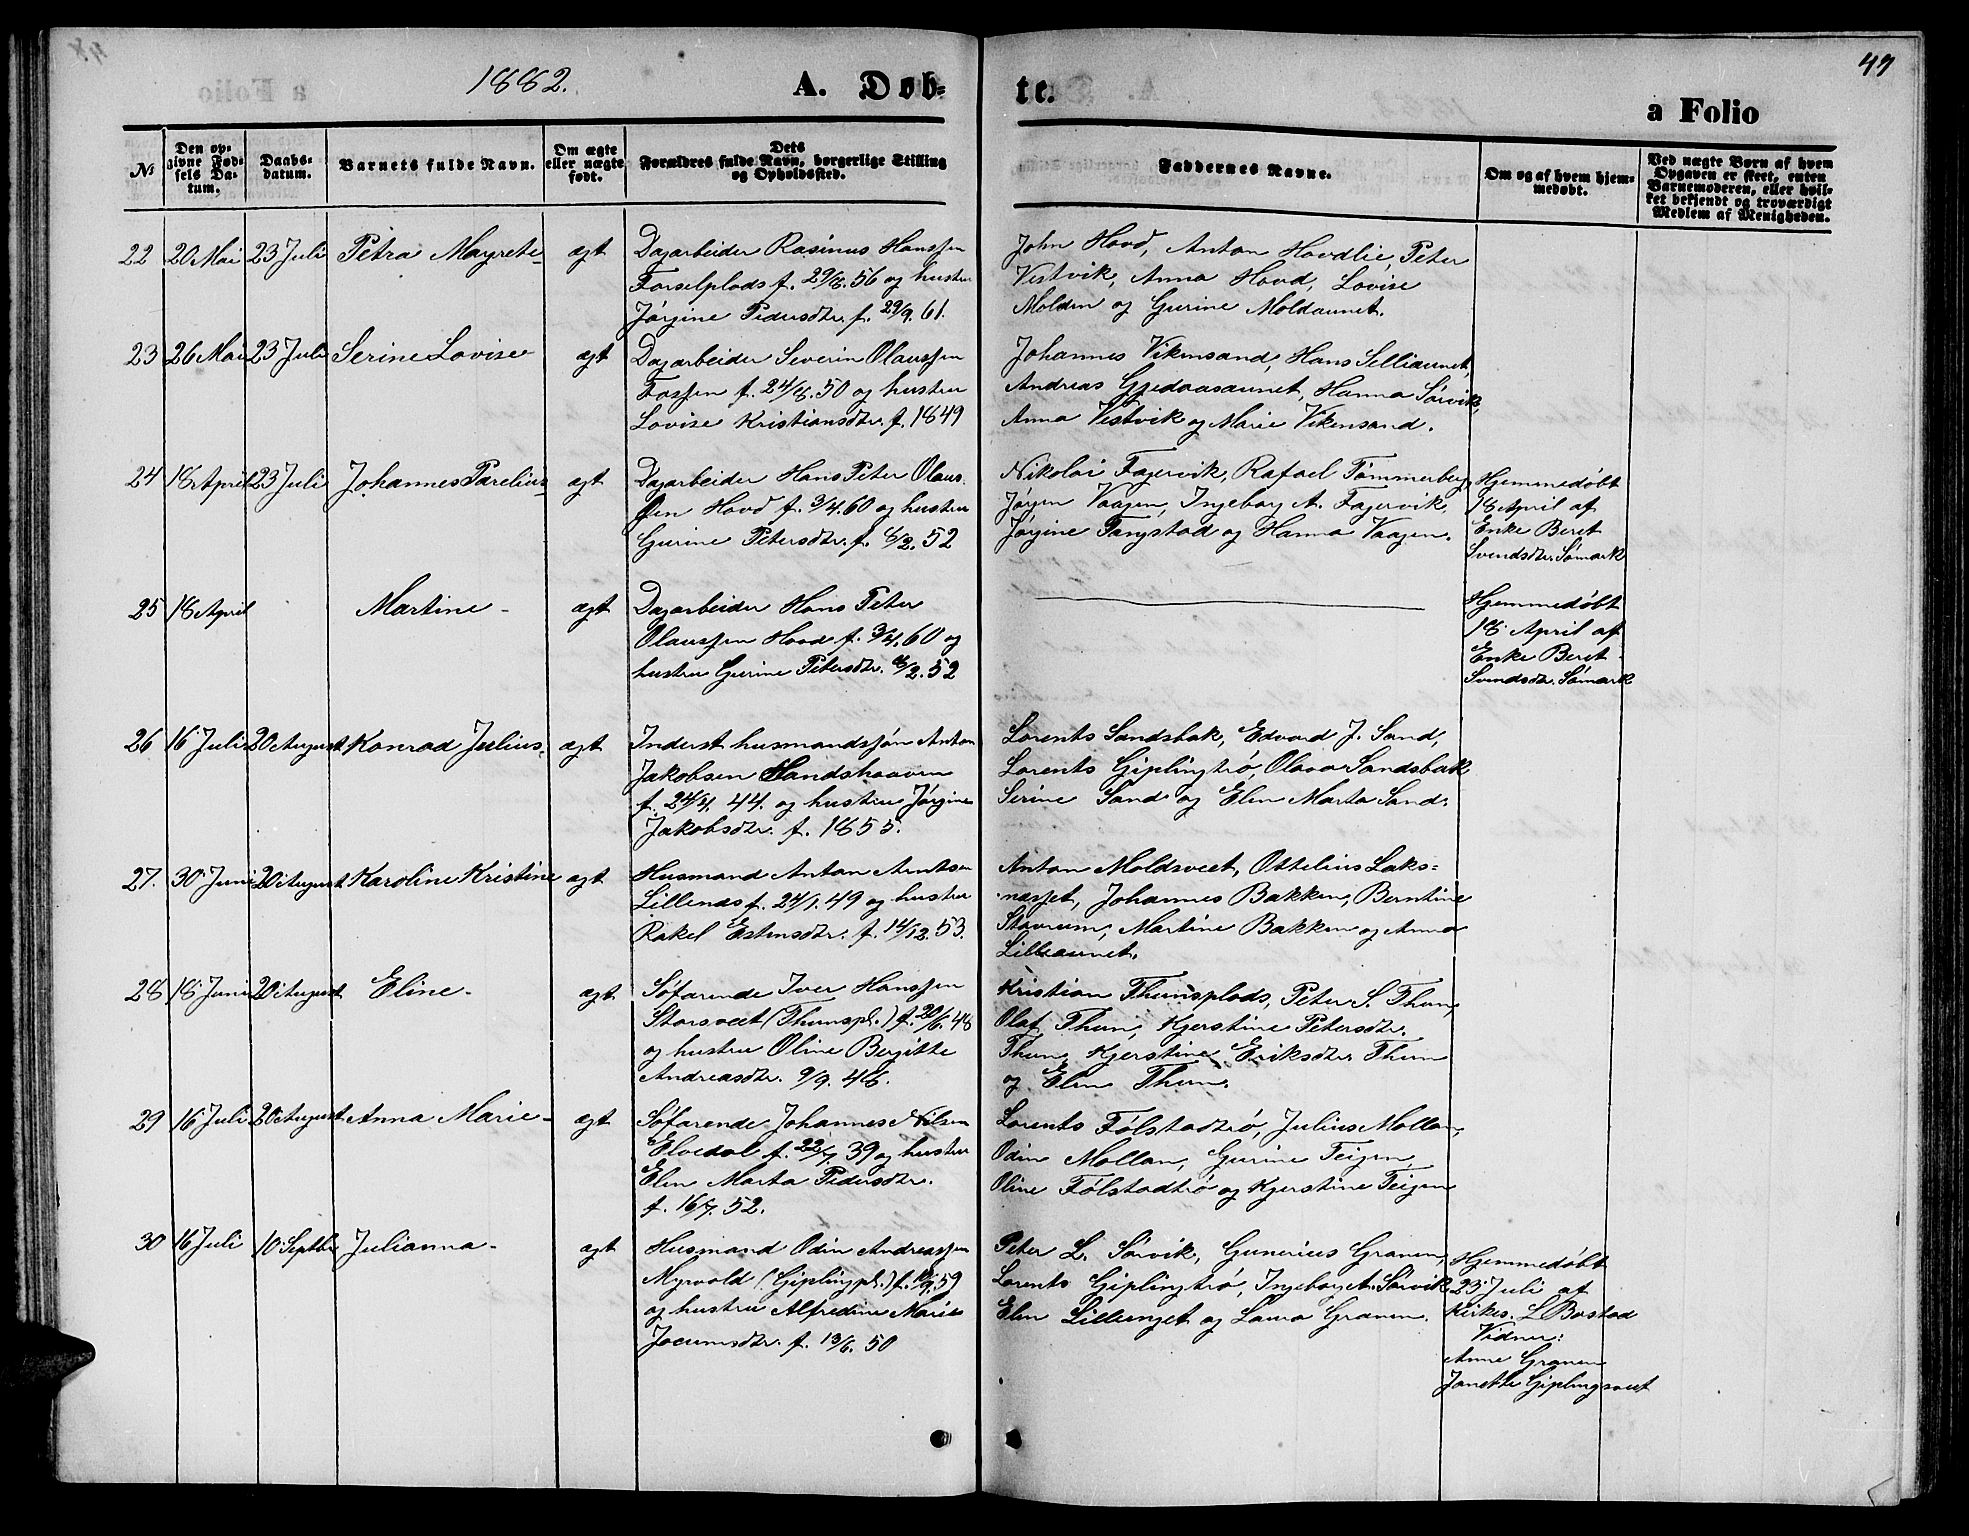 1882.
A. Døb-
te.
47
a Folio
No
Den op-
givne Fød-
sels Da-
tum.
Daabs-
datum.
Barnets fulde Navn.
Om ægte
eller uægte
født.
Dets
Forældres fulde Navn, borgerlige Stilling
og Opholdssted.
Faddernes Navne.
Om og af hvem hjem-
medøbt.
Ved uægte Børn af hvem
Opgaven er skeet, enten
Barnemoderen, eller hvil-
ket bekjendt og troværdigt
Medlem af Menigheden.
22 20 Mai 23 Juli Petra Magrete- ægt
Dagarbeider Rasinus Hanssen
Forselplads f. 29/8.56 og hustru
Jørgine Pedersdtr. f. 29/9.61.
John Hovd, Anton Hovdlie, Peter
Vestvik, Anna Hovd, Lovise
Molden og Gurine Moldaunet.
23 26 Mai 23 Juli Serine Lovise ægt
Dagarbeider Severin Olaussen
Fossen f. 24/8.50 og hustru
Lovise Kristiansdtr. f. 1849
Johannes Vikensand, Hans Selliaunet,
Andreas Gjedaasaunet, Hanna Sørvik,
Anna Vestvik og Marie Vikensand.
24 18 April 23 Juli Johannes Parelius- ægt
Dagarbeider Hans Peter Olaus-
sen Hovd f. 3/4.60 og hustru
Gurine Petersdtr. f. 8/2.52
Nikolai Fagervik, Rafael Tømmerberg,
Jørgen Vaagen, Ingeborg A. Fagervik,
Jørgine Fangstad og Hanna Vaagen.
Hjemmedøbt
18 April af
Enke Beret
Svendsdtr. Sømark
25 18 April Martine- ægt
Dagarbeider Hans Peter
Olaussen Hovd f. 3/4.60 og
hustru Gurine Petersdtr. 8/2.52
Hjemmedøbt
18 April af
Enke Beret
Svendsdtr. Sømark
26 16 Juli 20 August Konrad Julius- ægt
Inderst husmandssøn Anton
Jakobsen Sandshaaven
f. 24/4. 44. og hustru Jørgine
Jakobsdtr. f. 1855.
Lorents Sandsbak, Edvard J. Sand,
Lorents Giplingtrø, Olava Sandsbak
Serine Sand og Elen Marta Sand.
27. 30 Juni 20 August Karoline Kristine ægt
Husmand Anton Arntsen
Lillenes f. 24/1.49 og hustru
Rakel Estensdtr. f. 14/12.53.
Anton Moldsveet, Ottelius Laks-
næsset, Johannes Bakken, Berntine
Stavrum, Martine Bakken og Anna
Lilleaunet.
28 18 Juni 20 August Eline- ægt
Søfarende Iver Hanssen
Storsveet (Thunspl.) f. 20/6.48
og hustru Oline Bergitte
Andreasdtr. 9/9.48.
Kristian Thunsplads, Peter S. Thun,
Olaf Thun, Kjerstine Petersdtr.
Thun, Kjerstine Eriksdtr Thun
og Elen Thun.
29 16 Juli 20 August Anna Marie- ægt
Søfarende Johannes Nilsen
Elvedal f. 22/7 39 og hustru
Elen Marta Pedersdtr.
f. 16/7.52.
Lorents Følstadtrø, Julius Mollan,
Odin Mollan, Gurine Teigen,
Oline Følstadtrø og Kjerstine Teigen
30 16 Juli 10 Septbr Julianna- ægt
Husmand Odin Andreassen
Myrvold (Giplingpl.) f. 10/9.59
og hustru Alfredine Marie
Jocumsdtr. f. 13/6.50
Peter L. Sørvik, Gunerius Granen,
Lorents Giplingtrø, Ingeborg A. Sørvik
Elen Lillenget og Laura Granen.
Hjemmedøbt
23 Juli af
Kirkes. L Bostad
Vidner:
Anne Granen
Janette Giplingsveet